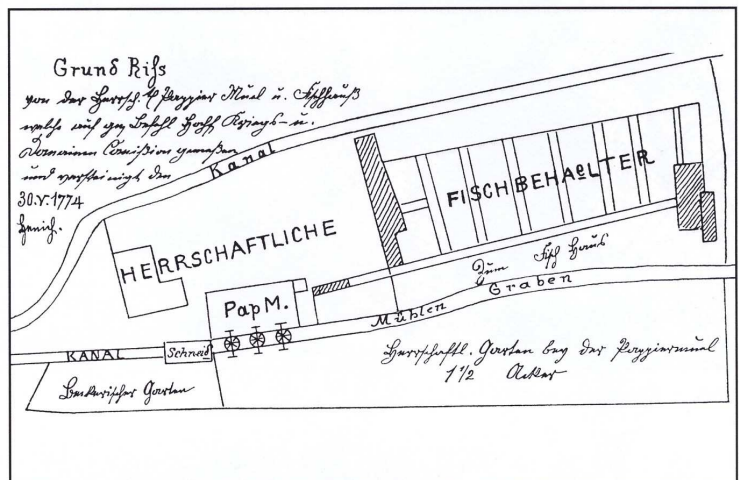 Grund Riſs
von der Herrsch. Pappier Müel u. Fischhauß
welche auf gn. Befehl Hochf. Kriegs- u.
Domainen Comißion gemeßen
und versteinigt den
30.V.1774
Henich.
Kanal
FISCHBEHAeLTER
HERRSCHAFTLICHE
Zum Fisch Haus
PapM.
Mühlen Graben
KANAL
Schneid
Herrschaftl. Garten bey der Pappiermüel
1 1/2 Acker
Beckerischer Garten